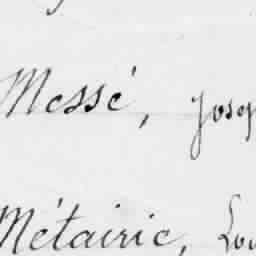 Messé, Josep
Métairie, Lou